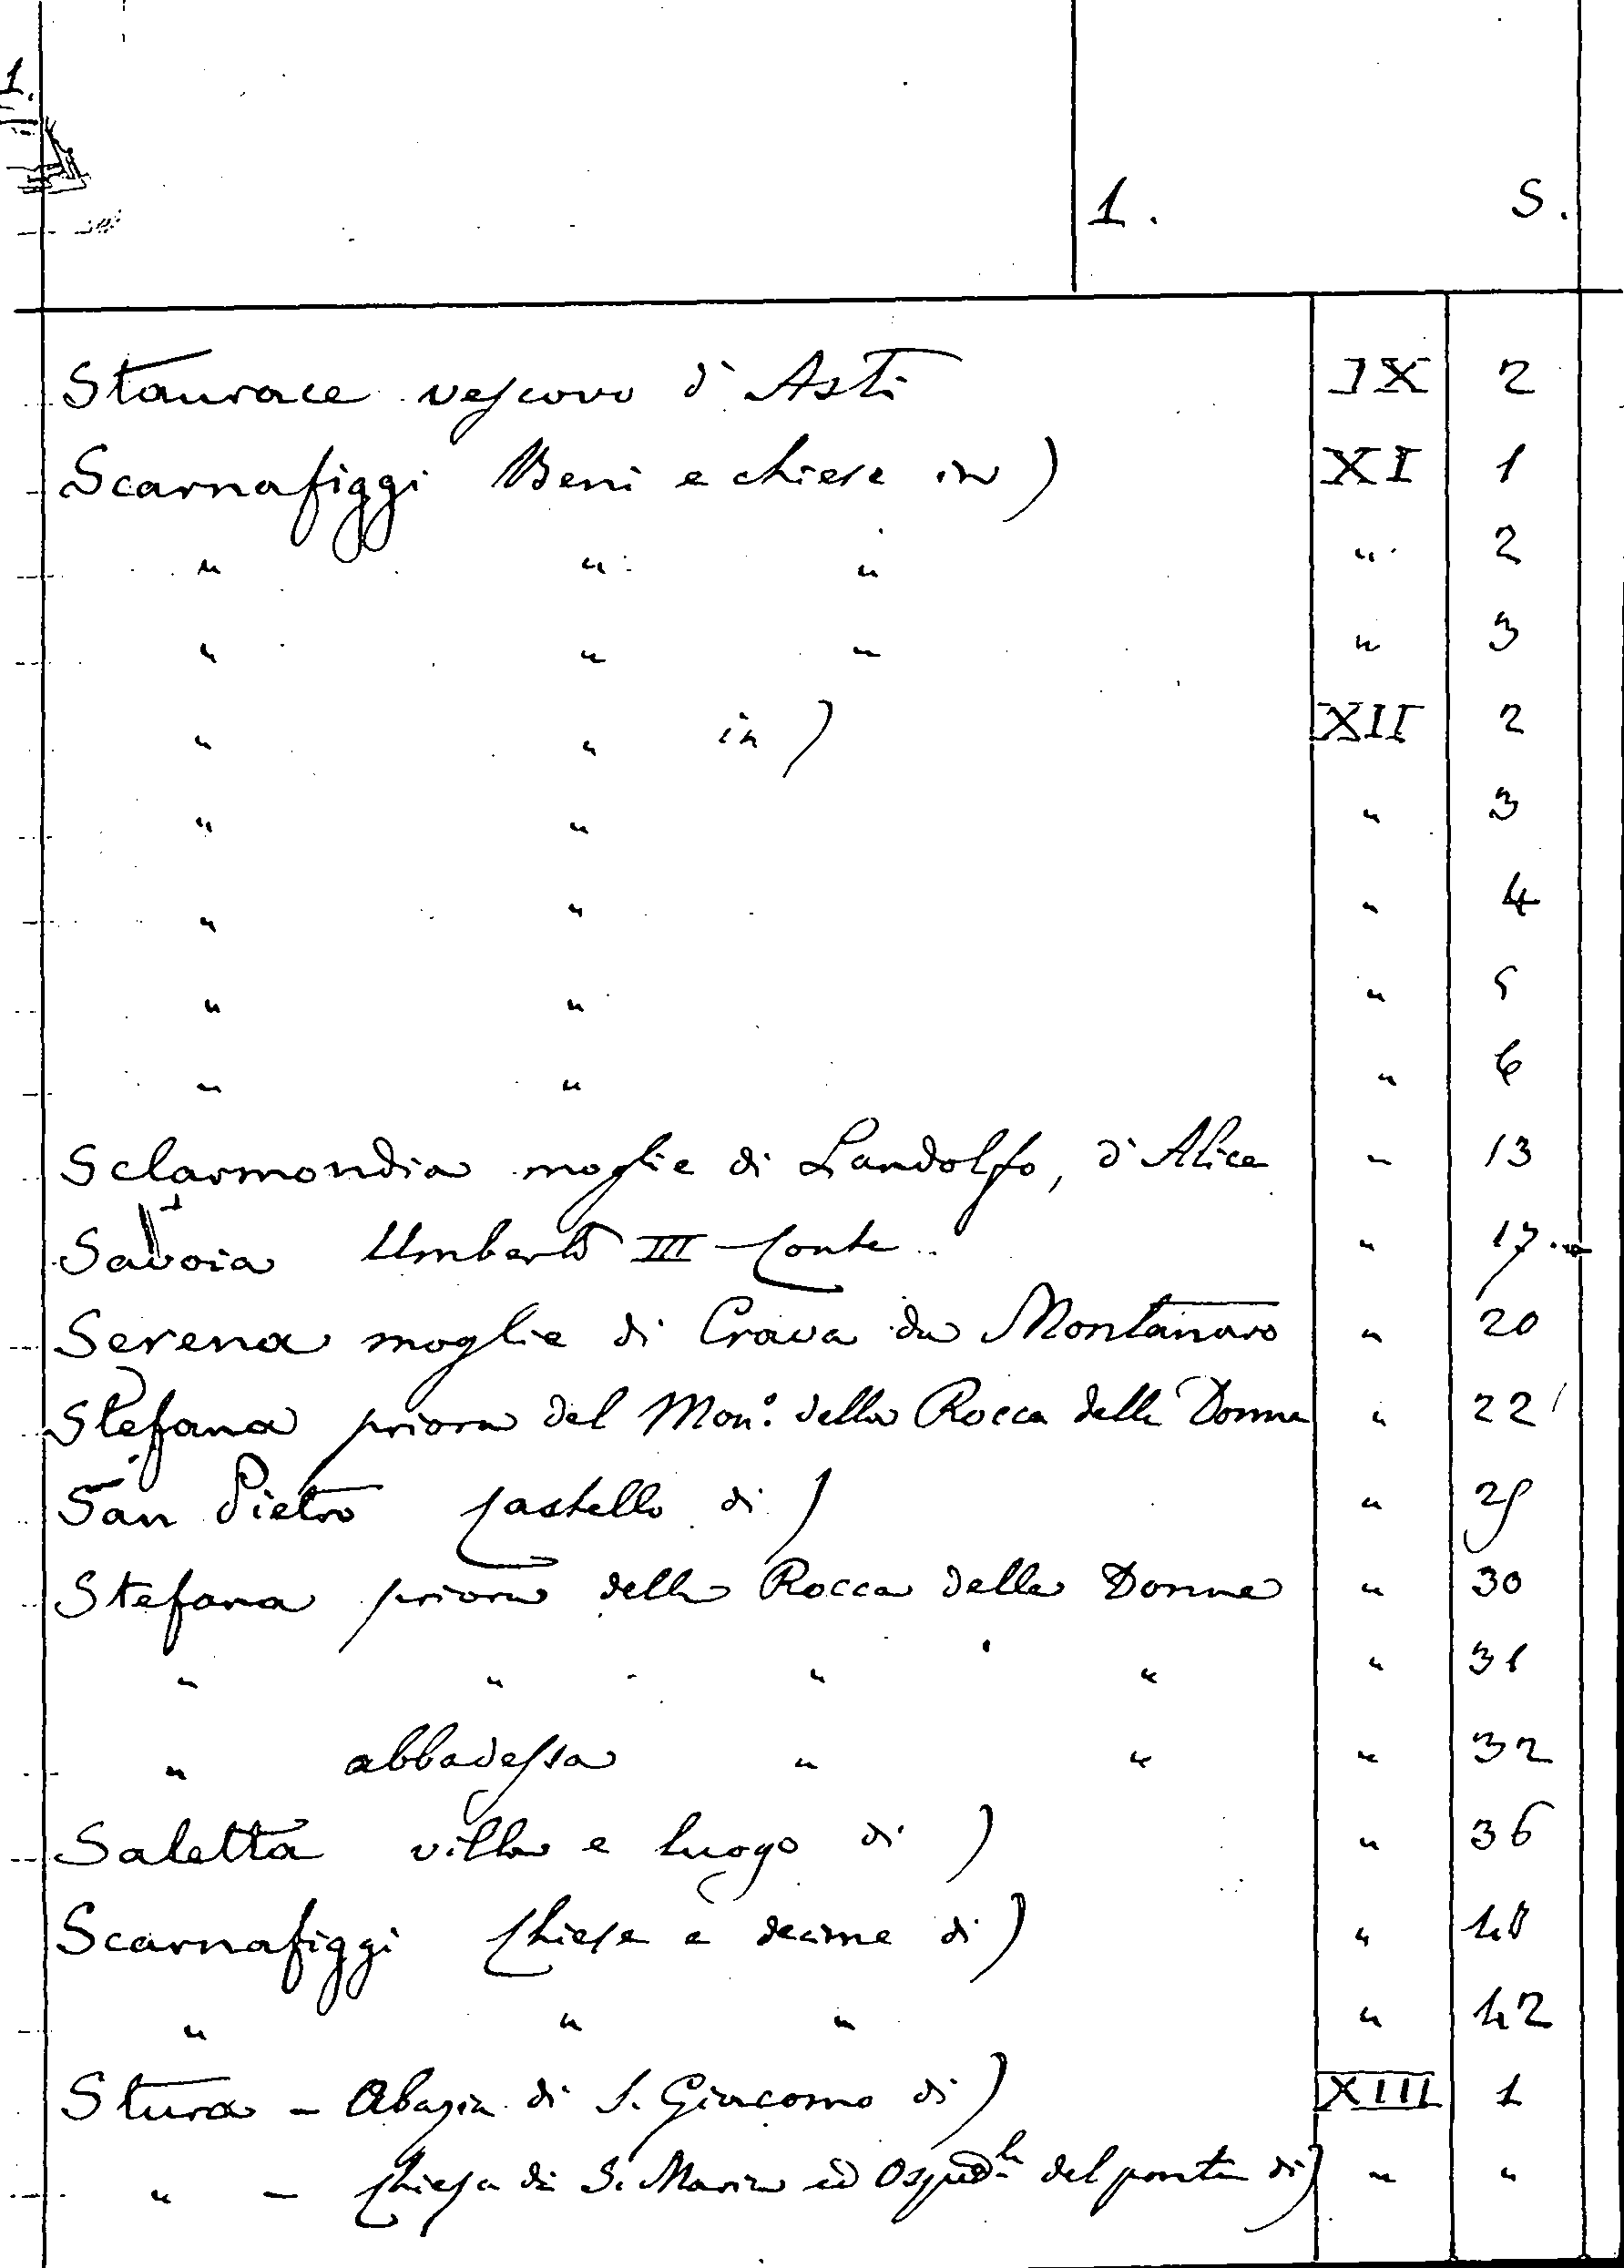 1.
1. S.
Staurace vescovo d'Asti IX 2
Scarnafiggi Beni e chiese in) XI 1
" " " " 2
" " " " 3
" " in) XII 2
" " " 3
" " " 4
" " " 5
" " " 6
Sclarmondia moglie di Landolfo, d'Alice " 13
Savoia Umberto III Conte " 17
Serena moglie di Crava da Montanaro " 20
Stefana priora del Mon.o della Rocca delle Donne " 22
San Pietro Castello di) " 25
Stefana priora della Rocca delle Donne " 30
" " " " " 31
" abbadessa " " " 32
Saletta villa e luogo di) " 36
Scarnafiggi Chiese e decime di) " 40
" " " " 42
Stura - Abazia di S. Giacomo di) XIII 1
" - Chiesa di S. Maria ed Osped.le del ponte di) " "